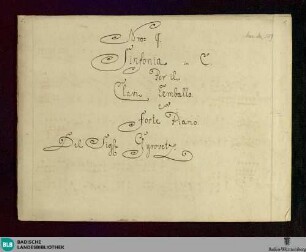 Nro: 9.
Sinfonia in C
Per il
Clavi Cemballo
o
Forte Piano
Del Sigl: Gyrovetz
BLB
BADISCHE
LANDESBIBLIOTHEK